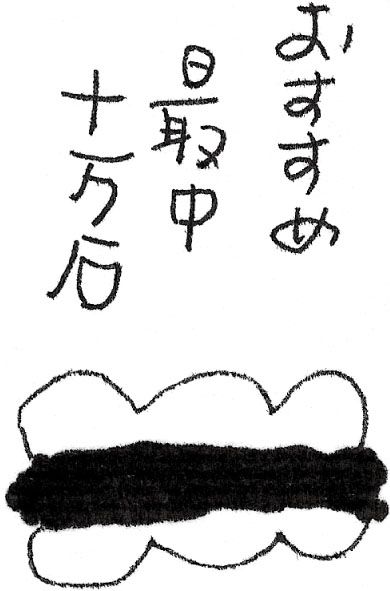 おすすめ
最中
十万石